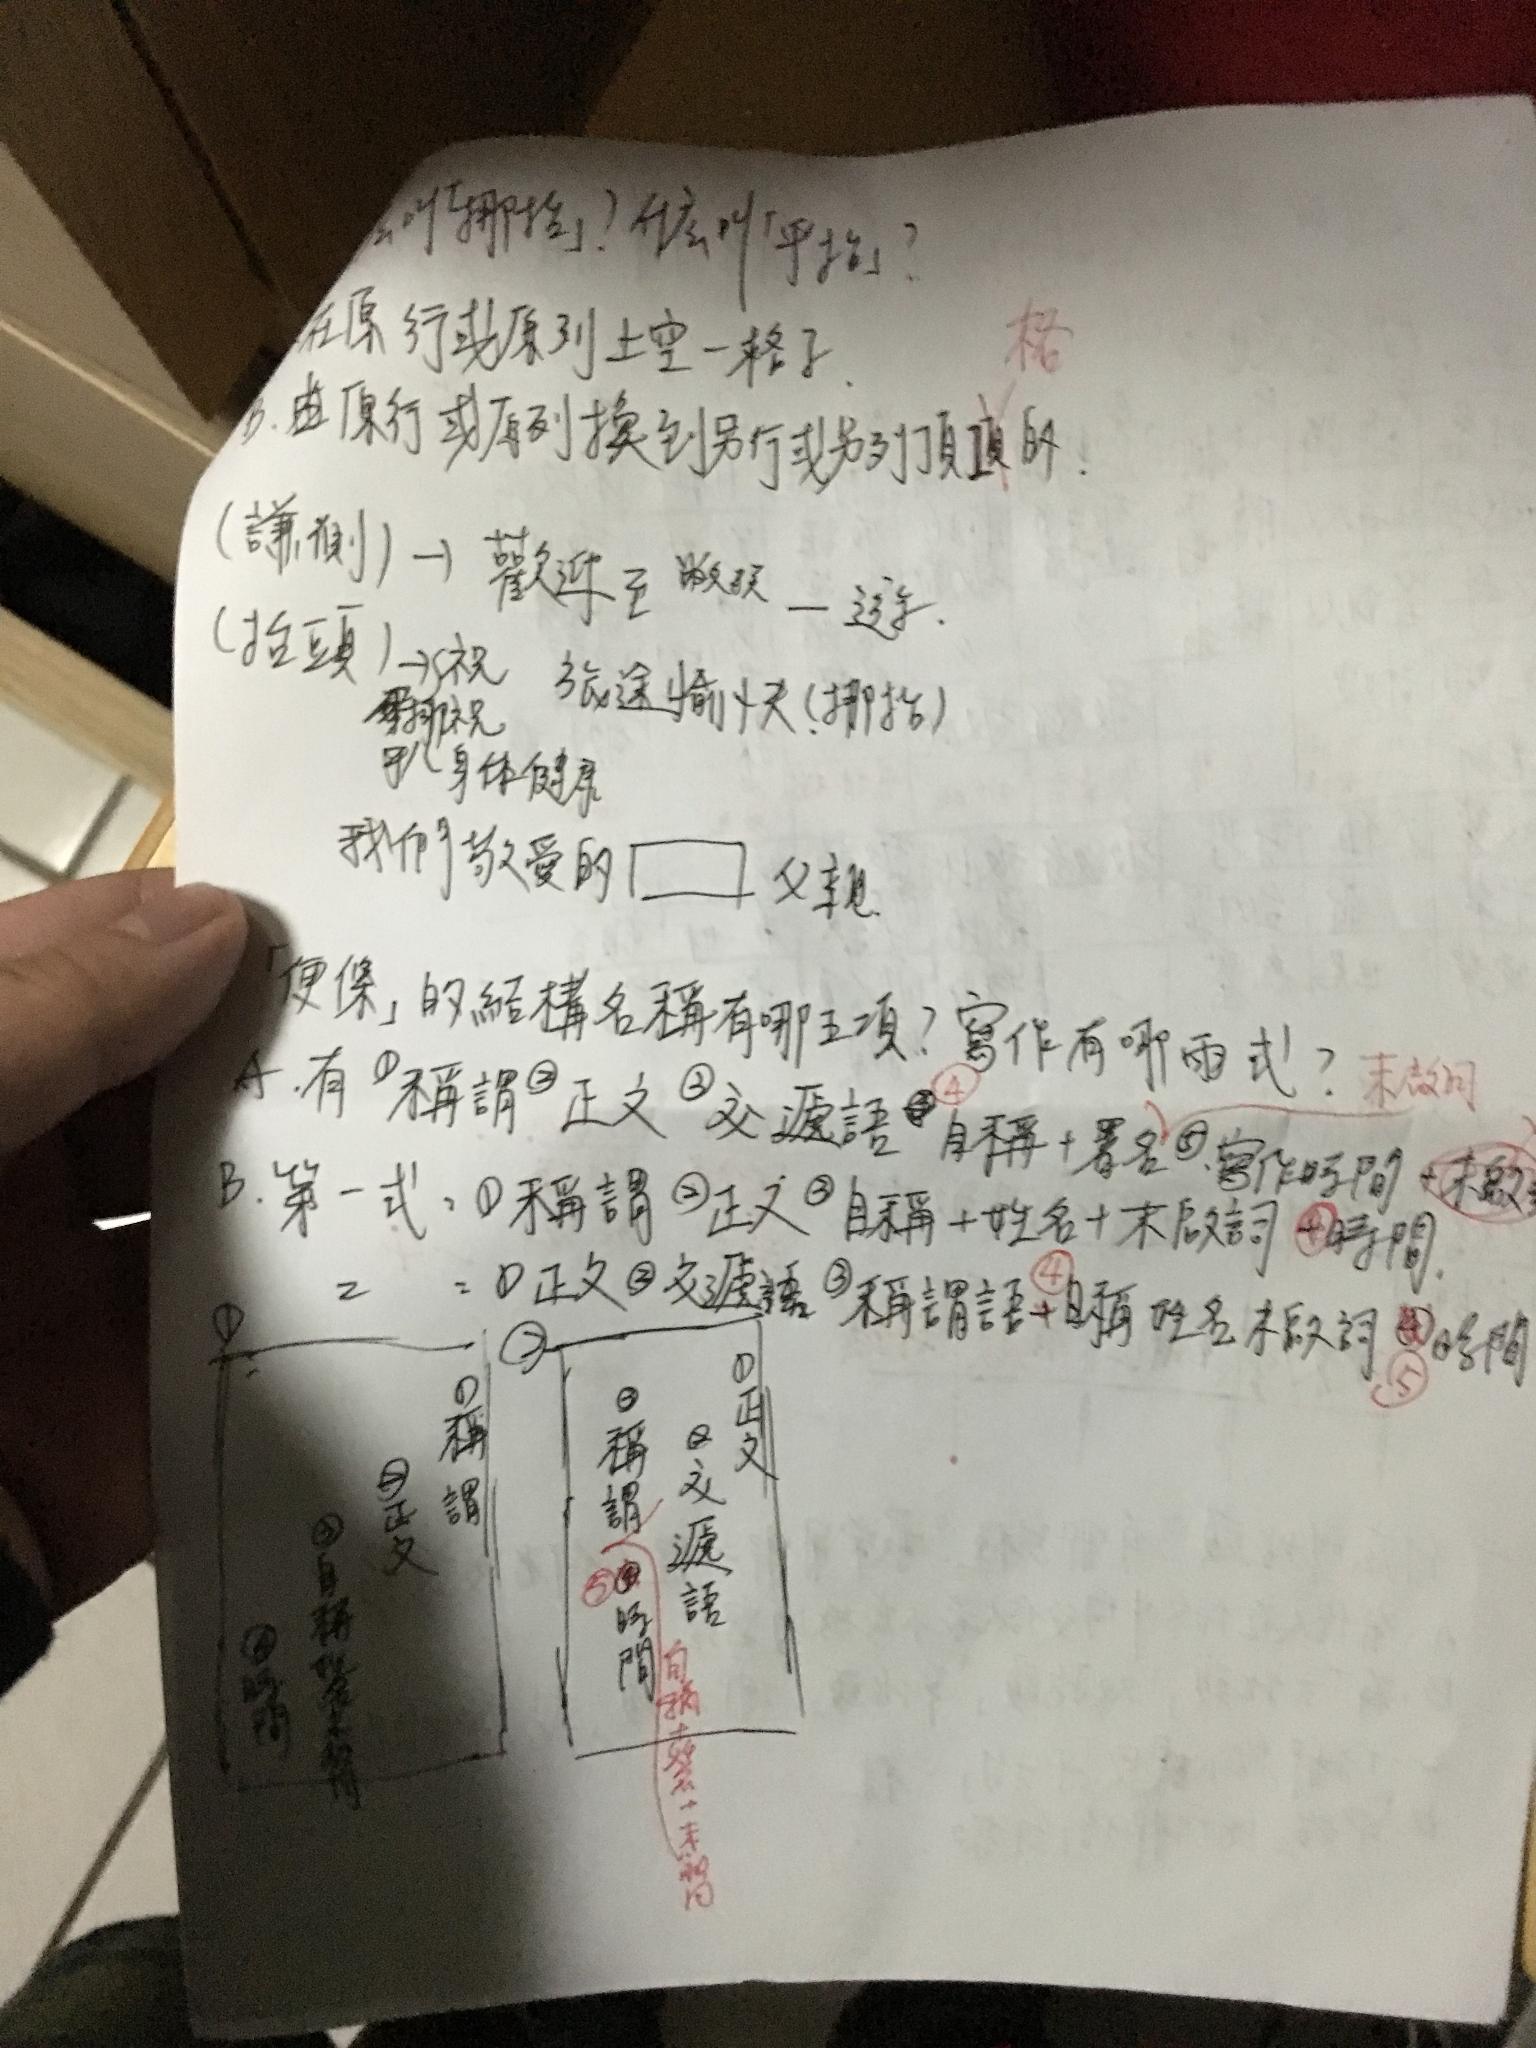 叫「挪抬」？什么叫「平抬」？
在原行或原列上空一格子.
格
B. 由原行或原列換到另行或另列頂的.
(謙側) → 歡迎至 敝 一遊.
(抬頭) → 祝 旅途愉快(挪抬)
祝
身体健康
我們敬愛的 父親.
「便條」的結構名稱有哪五項？寫作有哪兩式？
末啟詞
A.有①稱謂②正文③交遞語④自稱+署名⑤.寫作時間+末啟
B.第一式：①稱謂②正文③自稱+姓名+末啟詞④時間.
二 ：①正文②交遞語③稱謂語④自稱姓名末啟詞⑤時間
①
①稱謂
②正文
③自稱
④時間
②
①正文
②交遞語
③稱謂
⑤時間
自稱+署名+末啟詞